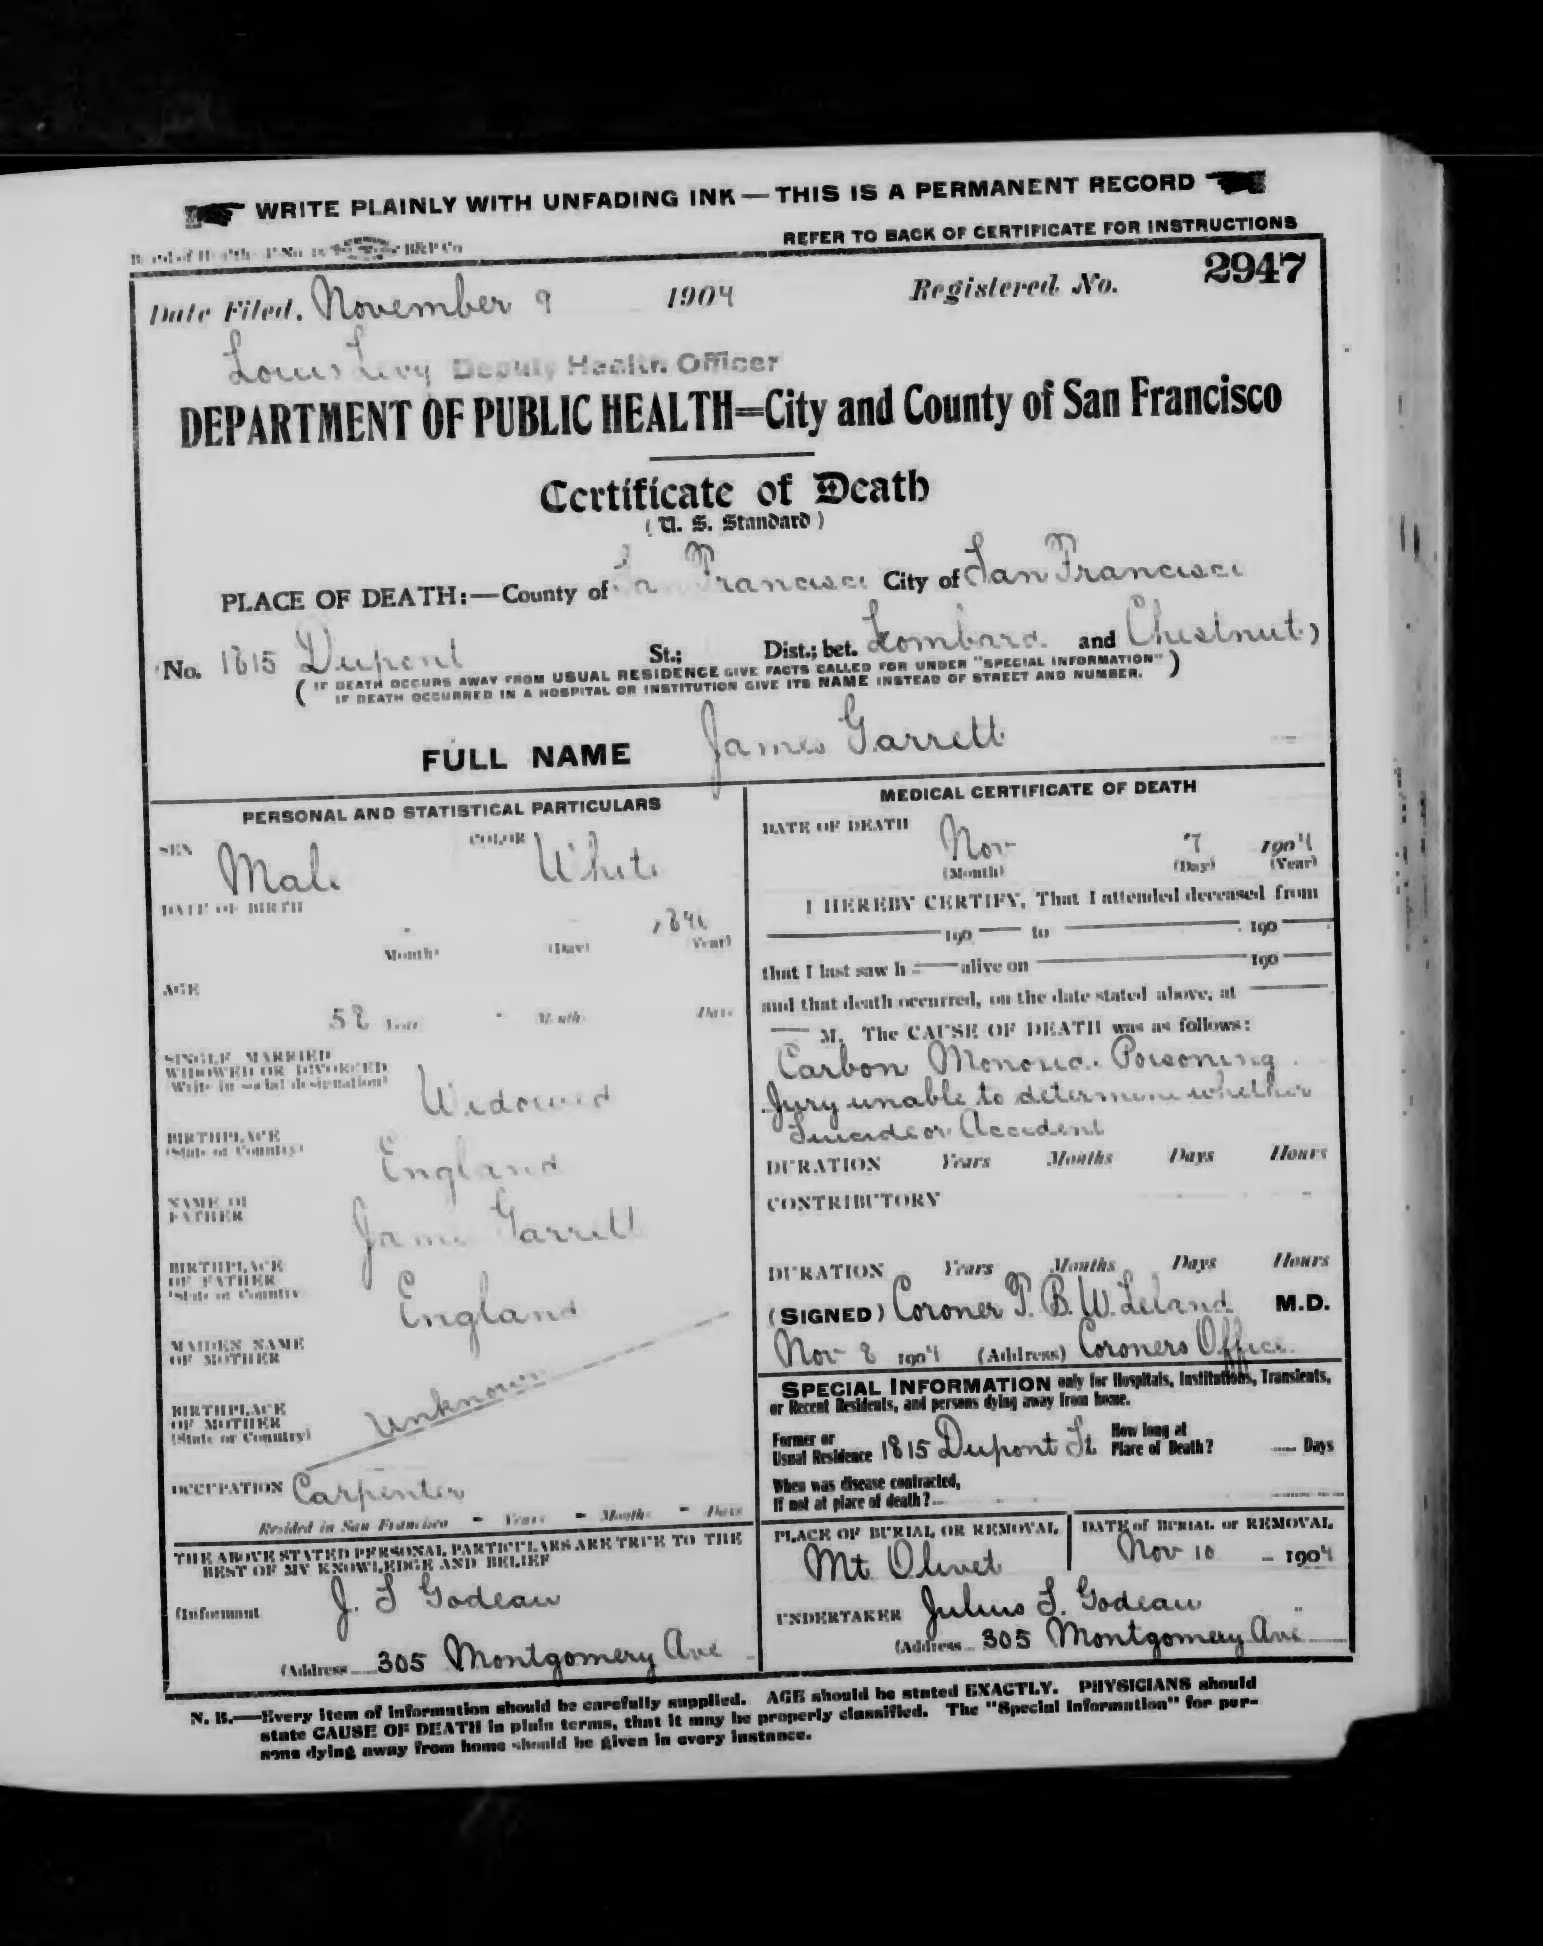 WRITE PLAINLY WITH UNFADING INK — THIS IS A PERMANENT RECORD
B&P Co
REFER TO BACK OF CERTIFICATE FOR INSTRUCTIONS
Date Filed, November 9 1904 Registered No. 2947
Louis Levy Deputy Health Officer
DEPARTMENT OF PUBLIC HEALTH=City and County of San Francisco
Certificate of Death
(U. S. Standard)
PLACE OF DEATH:—County of San Francisco City of San Francisco
No. 1815 Dupont St.; Dist.; bet. Lombard and Chestnut)
( IF DEATH OCCURS AWAY FROM USUAL RESIDENCE GIVE FACTS CALLED FOR UNDER "SPECIAL INFORMATION" )
IF DEATH OCCURRED IN A HOSPITAL OR INSTITUTION GIVE ITS NAME INSTEAD OF STREET AND NUMBER.
FULL NAME James Garrett
PERSONAL AND STATISTICAL PARTICULARS
SEX Male COLOR White
DATE OF BIRTH
(Month) (Day) (Year)
AGE
58 Years Months Days
SINGLE, MARRIED
WIDOWED OR DIVORCED
(Write in social designation)
Widowed
BIRTHPLACE
(State or Country)
England
NAME OF
FATHER
James Garrett
BIRTHPLACE
OF FATHER
(State or Country)
England
MAIDEN NAME
OF MOTHER
BIRTHPLACE
OF MOTHER
(State or Country)
Unknown
OCCUPATION Carpenter
Resided in San Francisco - Years - Months - Days
THE ABOVE STATED PERSONAL PARTICULARS ARE TRUE TO THE
BEST OF MY KNOWLEDGE AND BELIEF
(Informant J. S Godeau
(Address 305 Montgomery Ave
MEDICAL CERTIFICATE OF DEATH
DATE OF DEATH
Nov 7 1904
(Month) (Day) (Year)
I HEREBY CERTIFY, That I attended deceased from
190 to 190
that I last saw h alive on 190
and that death occurred, on the date stated above, at
M. The CAUSE OF DEATH was as follows:
Carbon Monoxid. Poisoning
Jury unable to determine whether
Suicide or Accident
DURATION Years Months Days Hours
CONTRIBUTORY
DURATION Years Months Days Hours
(SIGNED) Coroner T. B. W. Leland M.D.
Nov 8 1904 (Address) Coroners Office
SPECIAL INFORMATION only for Hospitals, Institutions, Transients,
or Recent Residents, and persons dying away from home.
Former or
Usual Residence 1815 Dupont St How long at
Place of Death? Days
When was disease contracted,
If not at place of death?
PLACE OF BURIAL OR REMOVAL
Mt. Olivet
DATE of BURIAL or REMOVAL
Nov 10 1904
UNDERTAKER Julius S. Godeau
(Address 305 Montgomery Ave
N. B.—Every item of information should be carefully supplied. AGE should be stated EXACTLY. PHYSICIANS should
state CAUSE OF DEATH in plain terms, that it may be properly classified. The "Special Information" for per-
sons dying away from home should be given in every instance.